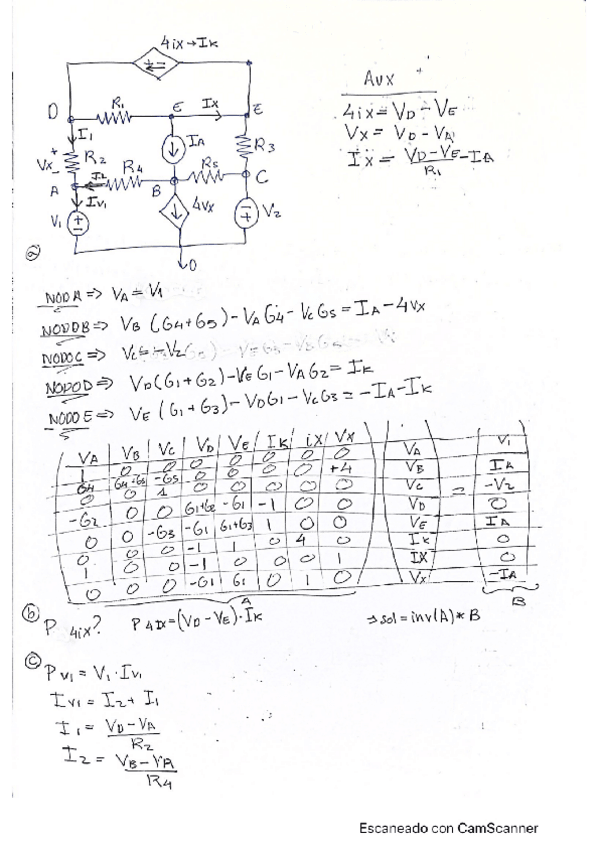 4ix→Ik
D R1 E Ix E
I1 IA R3
Vx + - R2 R4 R5
A I2 B C
Iv1 4Vx V2
V1
0
Aux
4ix = VD - VE
Vx = VD - VA
Ix = VD-VE/R1 - IA
a
NODO A => VA = V1
NODO B => VB (G4+G5) - VA G4 - VC G5 = IA - 4Vx
NODO C => VC = -V2
NODO D => VD(G1+G2) - VE G1 - VA G2 = IK
NODO E => VE (G1+G3) - VD G1 - VC G3 = -IA - IK
VA VB VC VD VE IK iX VX
1 0 0 0 0 0 0 0 VA V1
G4 G4+G5 -G5 0 0 0 0 +4 VB IA
0 0 1 0 0 0 0 0 VC = -V2
-G2 0 0 G1+G2 -G1 -1 0 0 VD 0
0 0 -G3 -G1 G1+G3 1 0 0 VE IA
0 0 0 -1 1 0 4 0 IK 0
1 0 0 -1 0 0 0 1 IX 0
0 0 0 -G1 G1 0 1 0 VX -IA
A B
b P 4ix? P4ix = (VD - VE) · IK → sol = inv(A) * B
c
PV1 = V1 · IV1
IV1 = I2 + I1
I1 = VD - VA / R2
I2 = VB - VA / R4
Escaneado con CamScanner